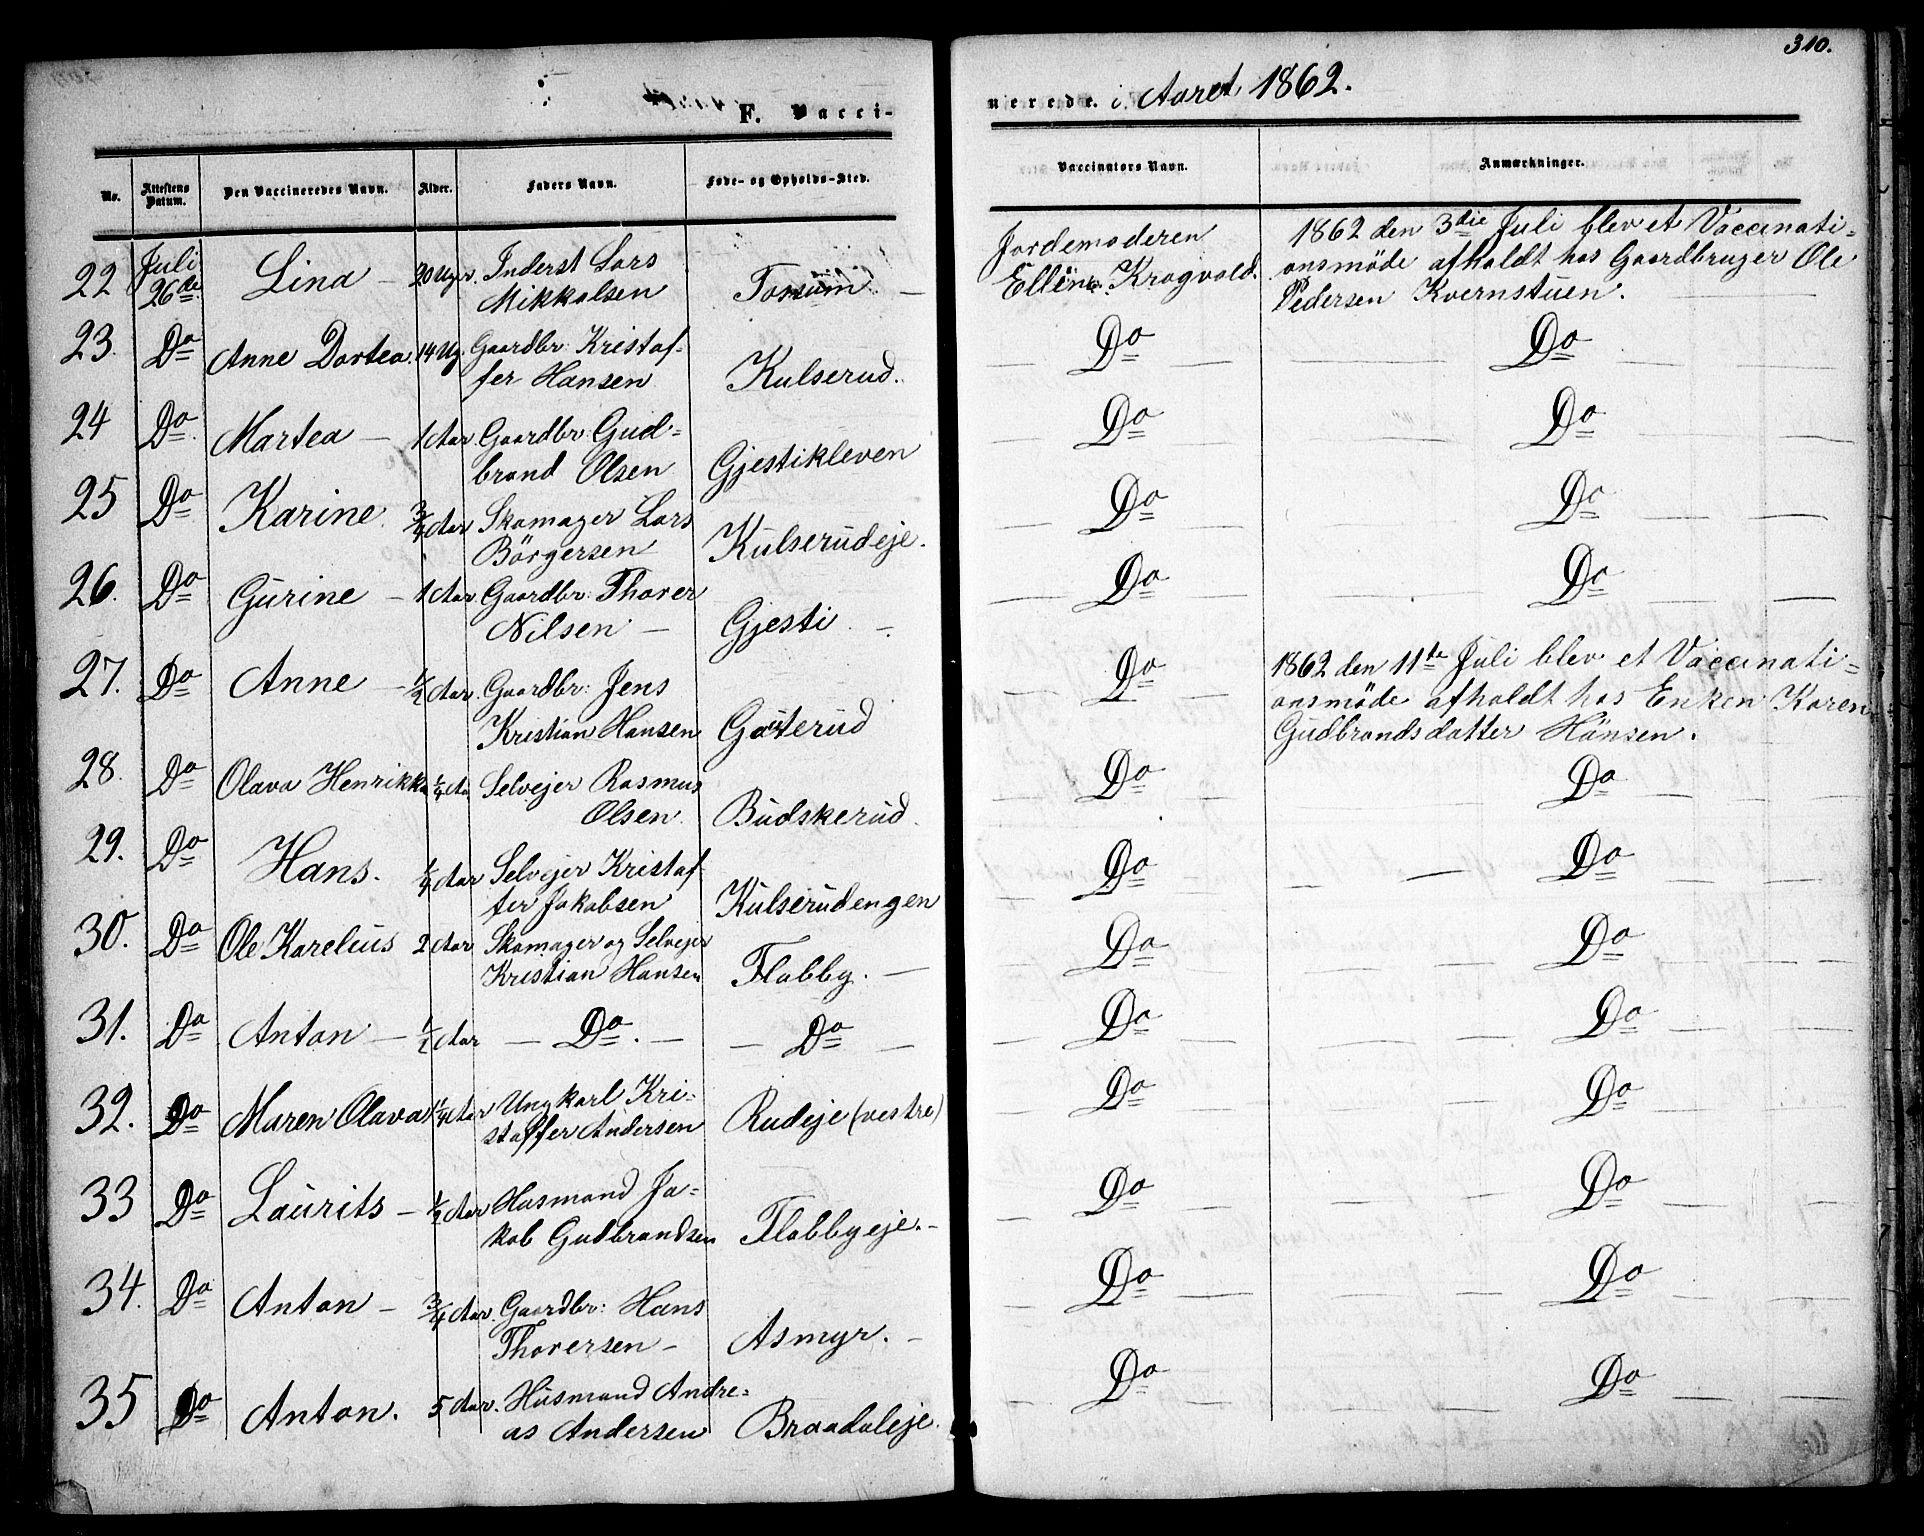 310.
F. Vacci-
nerede. i Aaret 1862.
No. Attestens Datum. Den Vaccineredes Navn. Alder. Faders Navn. Føde- og Opholds-Sted. Vaccinators Navn. Anmærkninger.
22 Juli 26de Lina – 20 Uger. Inderst Lars Mikkelsen Tosum – Jordemoderen Elline Krogvold. 1862 den 3die Juli blev et Vaccinationsmöde afholdt hos Gaardbruger Ole Pedersen Kvernstuen.
23. Do Anne Dortea. 14 Ug. Gaardbr: Kristaffer Hansen Kulserud. Do Do
24 Do Martea – 1 Aar Gaardbr: Gudbrand Olsen Gjestikleven Do Do
25 Do Karine. 3/4 Aar Skomager Lars Börgersen Kulserudeje. Do Do
26. Do Gurine – 1 Aar Gaardbr: Thorer Nilsen – Gjesti – Do Do
27. Do Anne – 1/2 Aar. Gaardbr: Jens Kristian Hansen Do 1862 den 11te Juli blev et Vaccinationsmöde afholdt hos Enken Karen Gudbrandsdatter Hönsen.
28. Do Olava Henrikka 1/4 Aa Selvejer Rasmus Olsen Budskerud. Do Do
29. Do Hans. 1/4 Aar Selvejer Kristaffer Jakobsen Kulserudengen Do Do
30. Do Ole Karelius 2 Aar Skomager og Selvejer Kristian Hansen Flabby. – Do Do
31. Do Anton – 1/2 Aar – Do. – – Do – Do Do
32. Do Maren Olava 1/4 Aar Ungkarl Kristaffer Andersen Rudeje (vestre) Do Do
33 Do Laurits – 1/2 Aar Husmand Jakob Gudbrandsen Flabbyeje. – Do Do
34. Do Anton – 3/4 Aar. Gaardbr: Hans Thorersen – Asmyr. – Do Do
35 Do Anton. 5 Aar. Husmand Andreas Andersen Braadaleje. Do Do